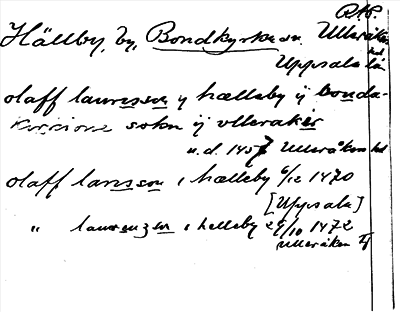 RAP.
Hällby, by, Bondkyrka sn. Ulleråkers hd.
Uppsala län
olaff laurisson y hælleby ij bonda-
kirkione sokn ij vlleraker
u.d. 1457 Ulleråkers hd
olaff larisson i hælleby 6/12 1470
[Uppsala]
" laurenzson i helleby 29/10 1472
Ulleråkers